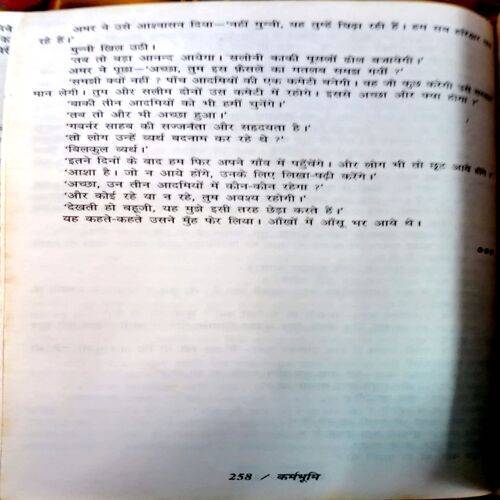 अमर ने उसे आश्वासन दिया—'नहीं मुन्नी, यह तुम्हें चिढ़ा रही हैं। हम सब हरिद्वार जा
रहे हैं।'
मुन्नी खिल उठी।
'तब तो बड़ा आनन्द आयेगा। सलोनी काकी मूसलों ढोल बजायेगी।'
अमर ने पूछा—'अच्छा, तुम इस फ़ैसले का मतलब समझ गयीं ?'
'समझी क्यों नहीं ? पाँच आदमियों की एक कमेटी बनेगी। वह जो कुछ करेगी उसे सरकार
मान लेगी। तुम और सलीम दोनों उस कमेटी में रहोगे। इससे अच्छा और क्या होगा ?'
'बाकी तीन आदमियों को भी हमीं चुनेंगे।'
'तब तो और भी अच्छा हुआ।'
'गवर्नर साहब की सज्जनता और सहृदयता है।'
'तो लोग उन्हें व्यर्थ बदनाम कर रहे थे ?'
'बिलकुल व्यर्थ।'
'इतने दिनों के बाद हम फिर अपने गाँव में पहुँचेंगे। और लोग भी तो छूट आये होंगे।'
'आशा है। जो न आये होंगे, उनके लिए लिखा-पढ़ी करेंगे।'
'अच्छा, उन तीन आदमियों में कौन-कौन रहेगा ?'
'और कोई रहे या न रहे, तुम अवश्य रहोगी।'
'देखती हो बहूजी, यह मुझे इसी तरह छेड़ा करते हैं।'
यह कहते-कहते उसने मुँह फेर लिया। आँखों में आँसू भर आये थे।
258 / कर्मभूमि